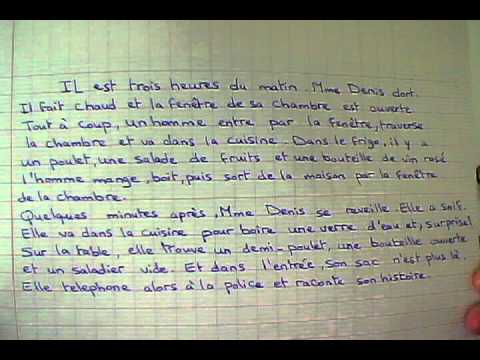 IL est trois heures du matin. Mme Denis dort.
Il fait chaud et la fenêtre de sa chambre est ouverte
Tout à coup, un homme entre par la fenêtre, traverse
la chambre et va dans la cuisine. Dans le frigo, il y a
un poulet, une salade de fruits et une bouteille de vin rosé
l'homme mange, boit, puis sort de la maison par la fenêtre
de la chambre.
Quelques minutes après, Mme Denis se reveille. Elle a soif.
Elle va dans la cuisine pour boire une verre d'eau et, surprise!
Sur la table, elle trouve un demi-poulet, une bouteille ouverte
et un saladier vide. Et dans l'entrée, son sac n'est plus là.
Elle telephone alors à la police et raconte son histoire.